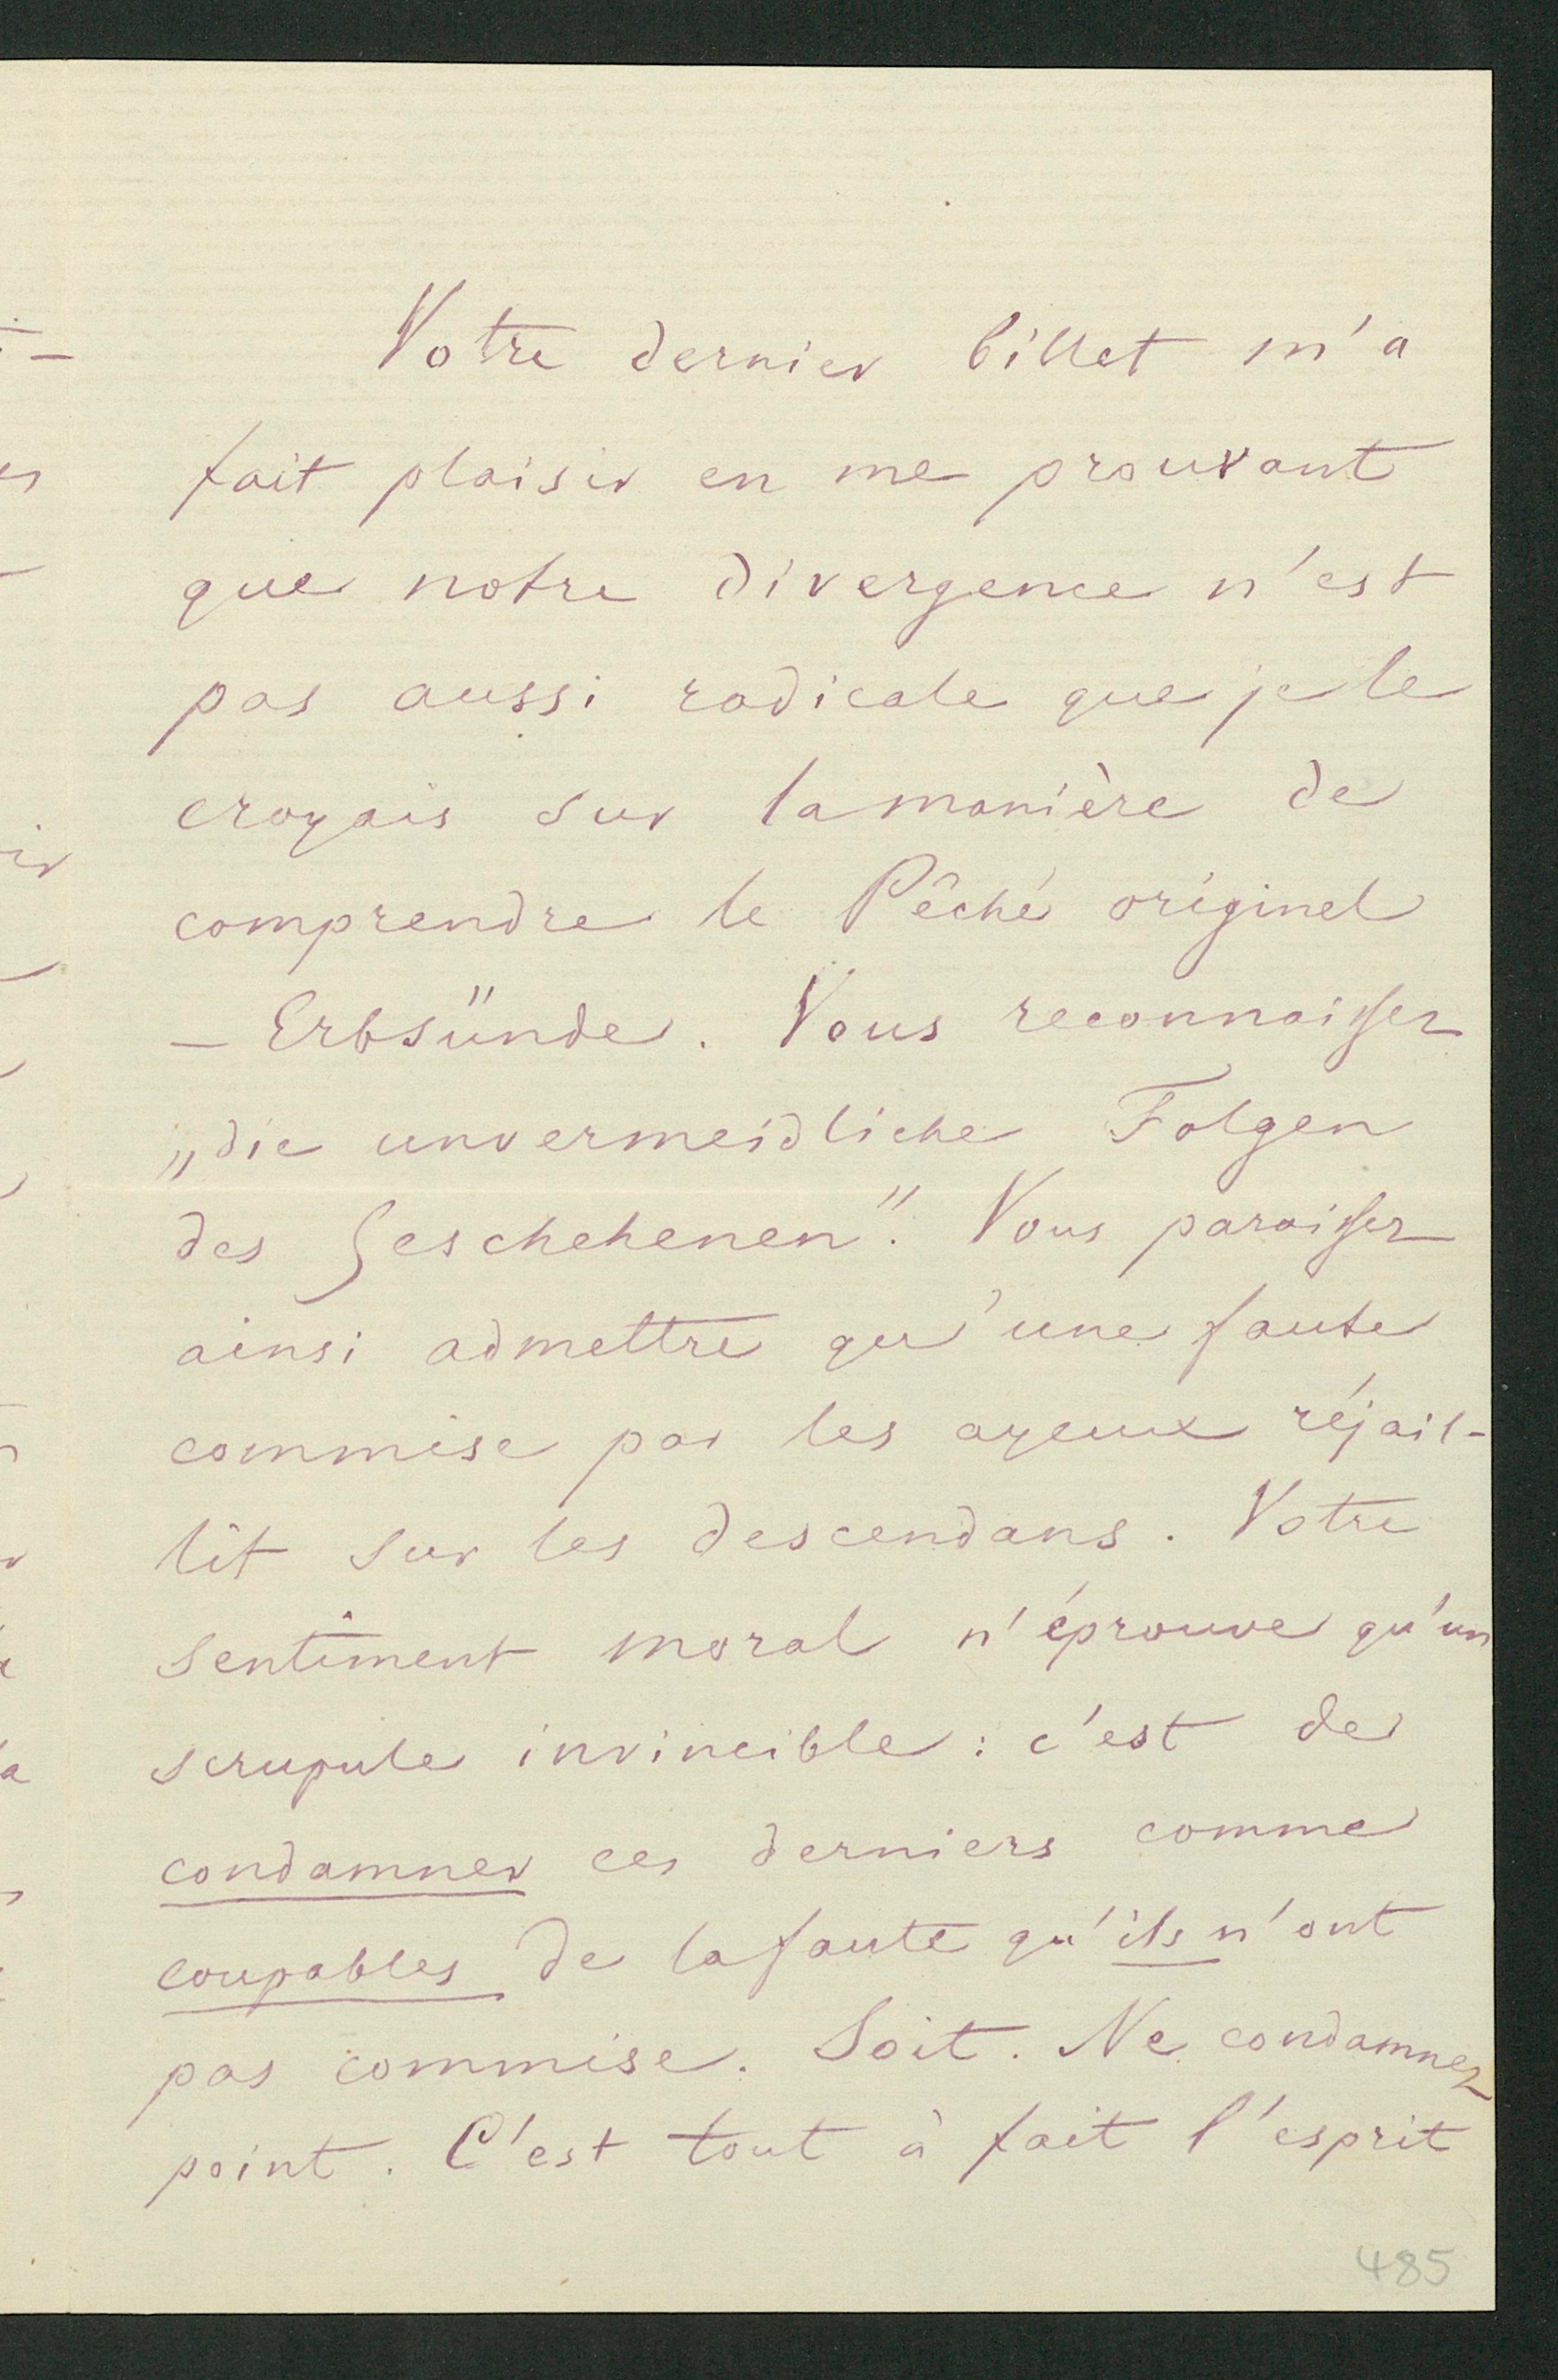 Votre dernier billet m'a
fait plaisir en me prouvant
que notre divergence n'est
pas aussi radicale que je le
croyais sur la manière de
comprendre le Pêché originel
— Erbsünde. Vous reconnaissez
„die unvermeidliche Folgen
des Geschehenen". Vous paraissez
ainsi admettre qu'une faute
commise par les ayeux réjail-
lit sur les descendans. Votre
sentiment moral n'éprouve qu'un
scrupule invincible: c'est de
condamner ces derniers comme
coupables de la faute qu'ils n'ont
pas commise. Soit. Ne condamnez
point. C'est tout à fait l'esprit
485